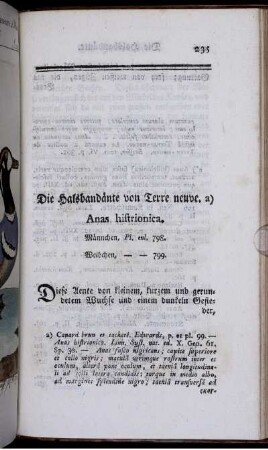 235
Die Halsbandänte von Terre neuve. a)
Anas histrionica.
Männchen, Pl. enl. 798.
Weibchen, — — 799.
Diese Aente von kleinem, kurzem und gerun-
detem Wuchse und einem dunkeln Gefie-
der,
a) Canard brun et tacheté. Edwards, p. et pl. 99. —
Anas histrionica. Linn. Syst. nat. ed. X. Gen. 61.
Sp. 30. — Anas fusco nigricans; capite superiore
et collo nigris; macula utrimque rostrum inter et
oculum, altera pone oculum, et taenia longitudina-
li ad colli latera candidis; torque in medio albo,
ad margines splendide nigro; taenia transversa ad
exor-